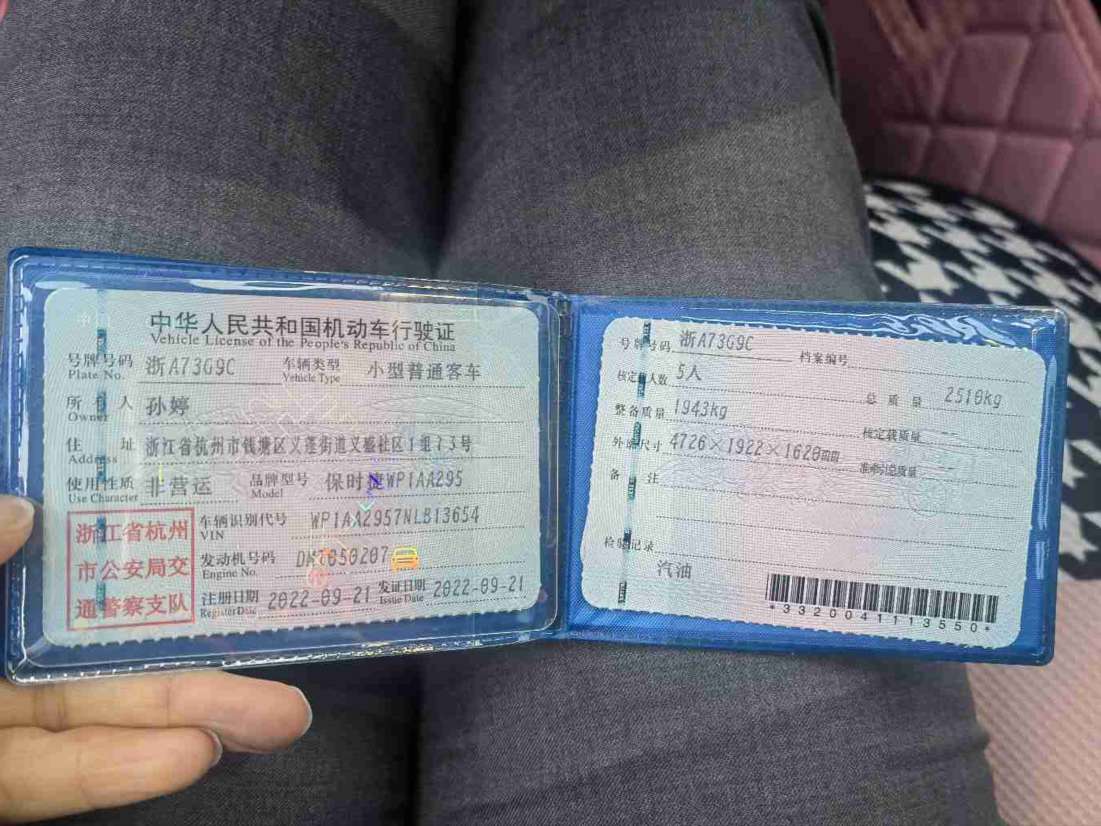 中华人民共和国机动车行驶证
Vehicle License of the People's Republic of China
号牌号码 浙A73G9C 车辆类型 小型普通客车
Plate No. Vehicle Type
所有人 孙婷
Owner
住址 浙江省杭州市钱塘区义蓬街道义盛社区1组73号
Address
使用性质 非营运 品牌型号 保时捷WP1AA295
Use Character Model
浙江省杭州
市公安局交
通警察支队
车辆识别代号 WP1AA2957NLB13654
VIN
发动机号码
Engine No.
注册日期 2022-09-21 发证日期 2022-09-21
Register Date Issue Date
号牌号码 浙A73G9C 档案编号
核定载人数 5人 总质量 2510kg
整备质量 1943kg 核定载质量 --
外廓尺寸 4726×1922×1620mm 准牵引总质量 --
备注
检验记录
汽油
*3320041113550*